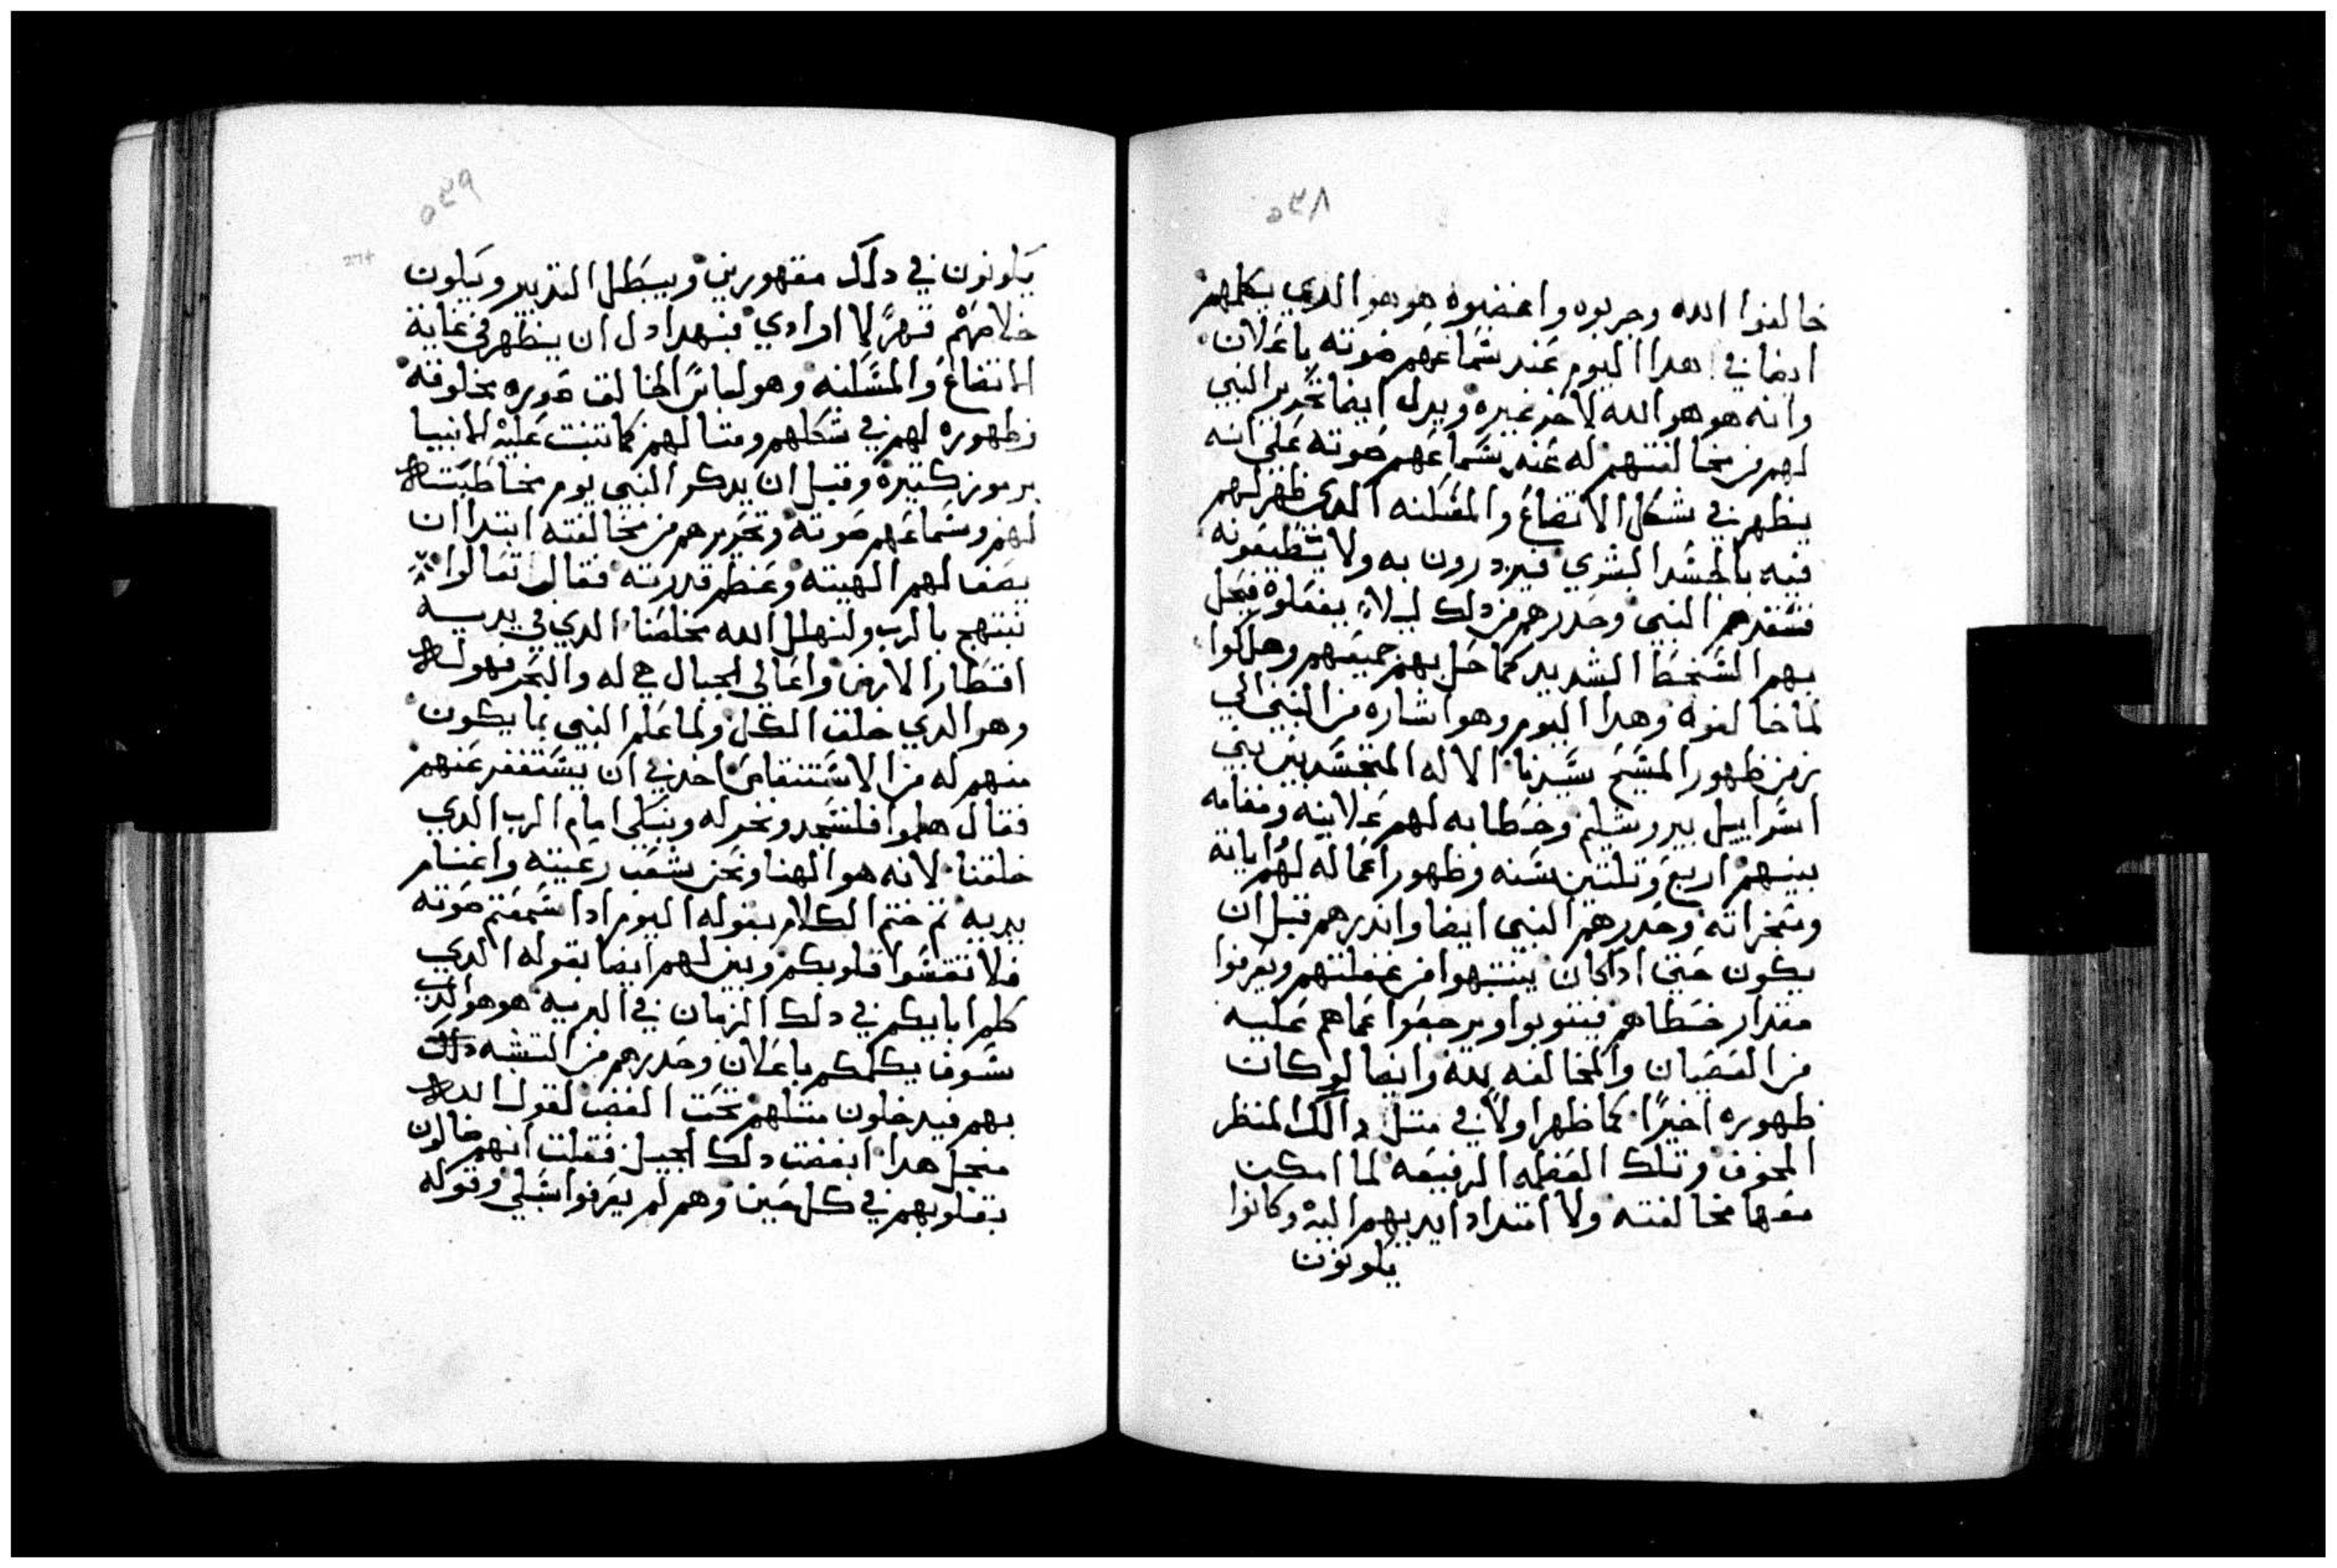 ٥٣٨
خالفوا الله وجربوه واغضبوه هو هو الدي يكلمهم
ايضا في هدا اليوم عند سماعهم صوته باعلان
وانه هو هو الله لاخر غيره ويدل ايضا تحدير النبي
لهم من مخالفتهم له عند سماعهم صوته على انه
يظهر في شكل الاتضاع والمسكنه الدي ظهر لهم
فيه بالجسد البشري فيزدرون به ولا يطيعونه
فسبقهم النبي وحدرهم من دلك ليلا يفعلوه فيحل
بهم السخط الشديد كما حل بهم جميعهم وهلكوا
لما خالفوه وهدا اليوم وهو اشاره من النبي الي
زمن ظهور المسيح سيدنا الاله المتجسد بين بني
اسراييل بيروشليم وخطابه لهم علانيه ومقامه
بينهم اربع وتلتين سنه وظهور اعماله لهم اياته
ومعجزاته وحدرهم النبي ايضا واندرهم قبل ان
يكون حتى ادا كان ينتبهوا من غفلتهم ويعرفوا
مقدار خطاهم فيتوبوا ويرجعوا عماهم عليه
من العصيان والمخالفه لله وايضا لو كان
ظهوره اخيرا كما ظهر اولا في متل دالك المنظر
المخوف وتلك العظمه الرفيعه لما امكن
معها مخالفته ولا امتداد ايديهم اليه وكانوا
يكونون
٥٣٩
يكونون في دلك مقهورين ويبطل التدبير ويكون
خلاصهم قهرا لا ارادي فبهدا دل ان يظهر في غاية
الاتضاع والمسكنه وهو لباس الخالق صوره مخلوقه
وظهوره لهم في شكلهم ومتالهم كما تنبت عليه الانبيا
برموز كتيره وقبل ان يدكر النبي يوم مخاطبته
لهم وسماعهم صوته وتحديرهم من مخالفته ابتدا ان
يصف لهم الهيته وعظم قدرته فقال تعالوا
نبتهج بالرب ولنهلل الله مخلصنا الدي في يديه
اقطار الارض واعالي الجبال هي له والبحر فهو له
وهو الدي خلق الكل ولما علم النبي بما يكون
منهم له من الاستنقاص اخد في ان يستغفر عنهم
فقال هلموا فلنسجد ونخر له ونبكي امام الرب الدي
خلقنا لانه هو الهنا ونحن شعب رعيته واغنام
يديه تم ختم الكلام بقوله اليوم ادا سمعتم صوته
فلا تقسوا قلوبكم وبين لهم ايضا بقوله الدي
كلم ابايكم في دلك الزمان في البريه هو هو الدي
سوف يكلمكم باعلان وحدرهم من التشبه
بهم فيدخلون متلهم تحت الغضب لقول الله
منجل هدا ابغضت دلك الجيل فقلت انهم ضالون
بقلوبهم في كل حين وهم لم يعرفوا سبلي وقوله